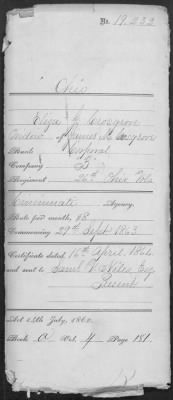 No. 19,232
Ohio
Eliza Y. Cosgrove
Widow of James W. Cosgrove
Rank Corporal
Company "B"
Regiment 26th Ohio Vols
Cincinnati Agency.
Rate per month, $8.
Commencing 29th Sept 1863
Certificate dated 16th April, 1864
and sent to Saml V. Niles Esq
Present
Act 14th July, 1862.
Book C Vol. 4 Page 181.